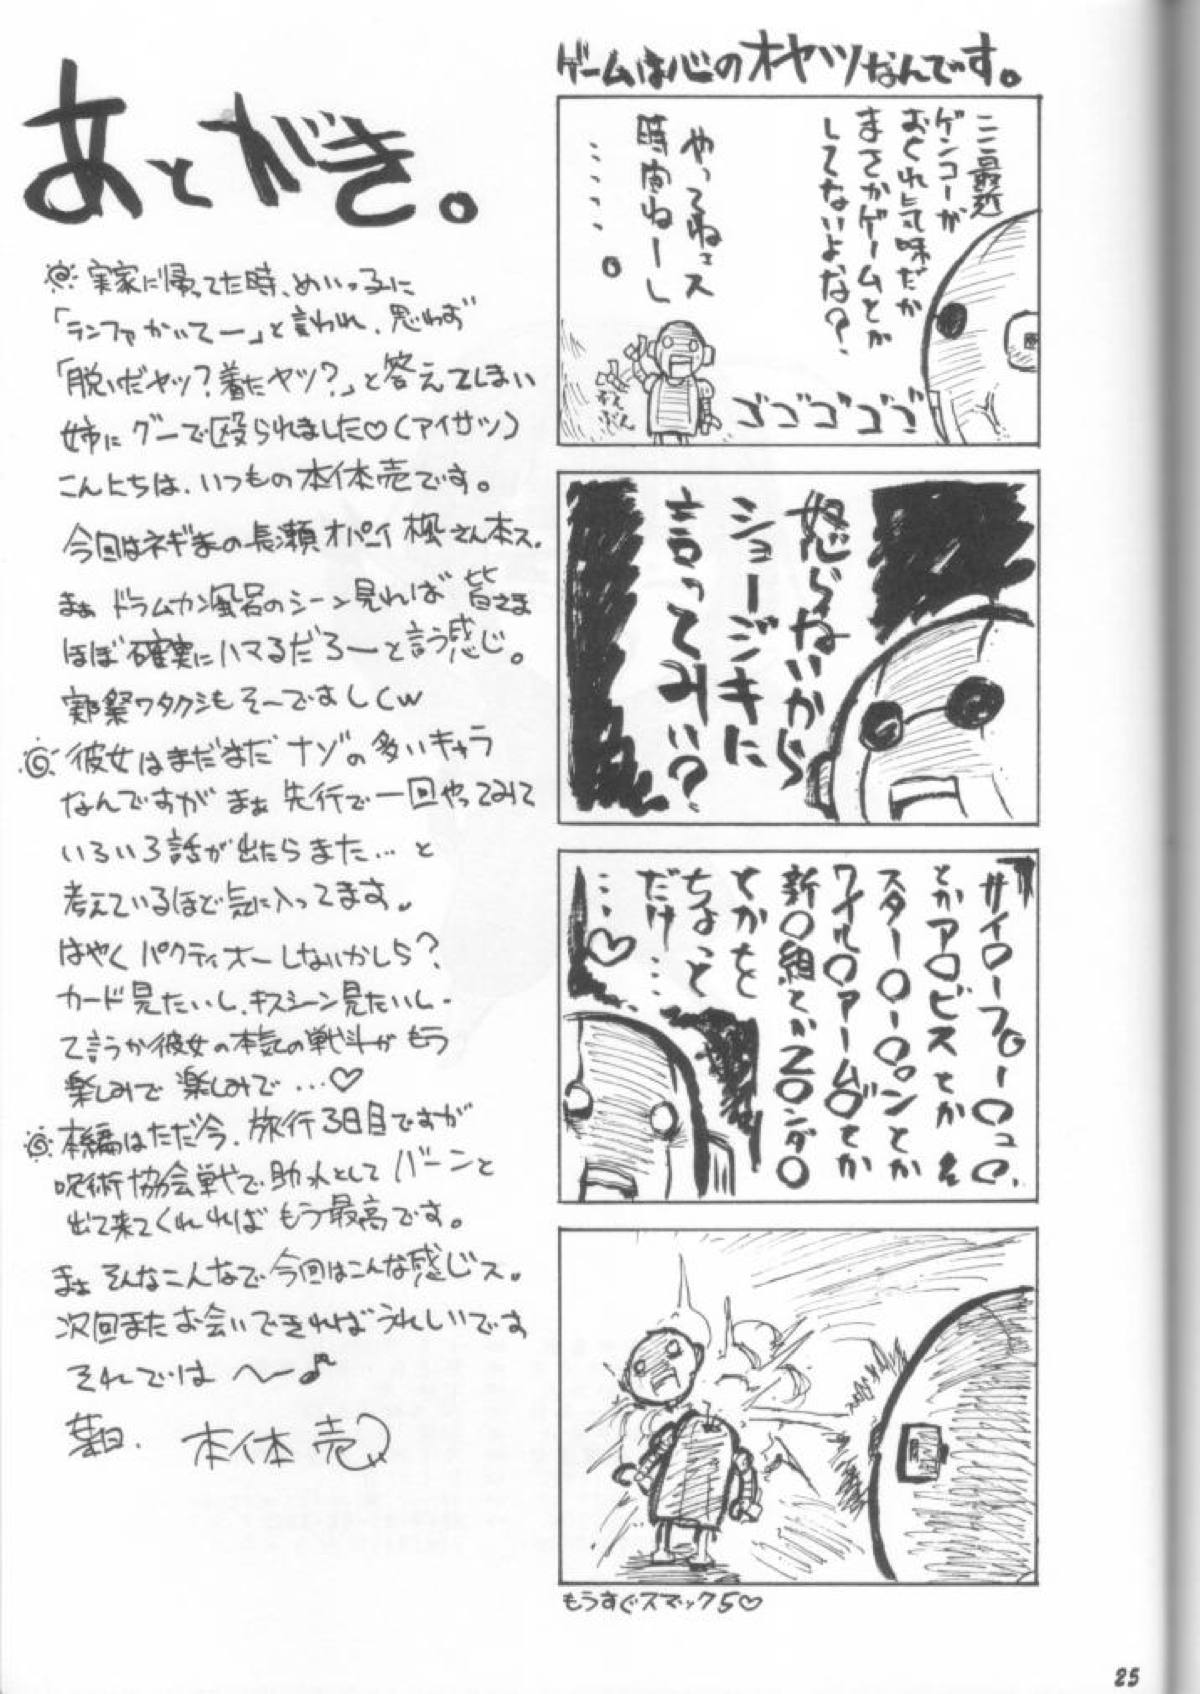 あとがき。
実家に帰ってた時、めいっ子に
「ランファかいてー」と言われ、思わず
「脱いだヤツ?着たヤツ?」と答えてしまい
姉にグーで殴られました♡(アイサツ)
こんにちは、いつもの本体売です。
今回はネギまの長瀬オパーイ楓さん本ス。
まぁドラムカン風呂のシーン見れば皆さま
ほぼ確実にハマるだろーと言う感じ。
実際ワタクシもそーでましくw
彼女はまだまだナゾの多いキャラ
なんですがまぁ先行で一回やってみて
いろいろ話が出たらまた…と
考えているほど気に入ってます。
はやくパクティオーしないかしら?
カード見たいし、キスシーン見たいし、
て言うか彼女の本気の戦斗がもう
楽しみで楽しみで…♡
本編はただ今、旅行3日目ですが
呪術協会戦で助っ人としてバーンと
出て来てくれればもう最高です。
まぁそんなこんなで今回はこんな感じス。
次回またお会いできればうれしいです
それではへー♪
本体売
ゲームは心のオヤツなんです。
最近
ゲンコーが
おくれ気味だが
まさかゲームとか
してないよな?
やってねェス
時間ねーし
……。
ゴゴゴゴゴ
怒らないから
ショージキに
言ってみい?
サイ○ーフ○ー○ュ、
とかア○ビスとか
スター○ー○ンとか
ワイル○アーム○とか
新○組とかZ○ンダ○
とかをと
ちょっと
だけ…
…♡
もうすぐスマック5♡
25